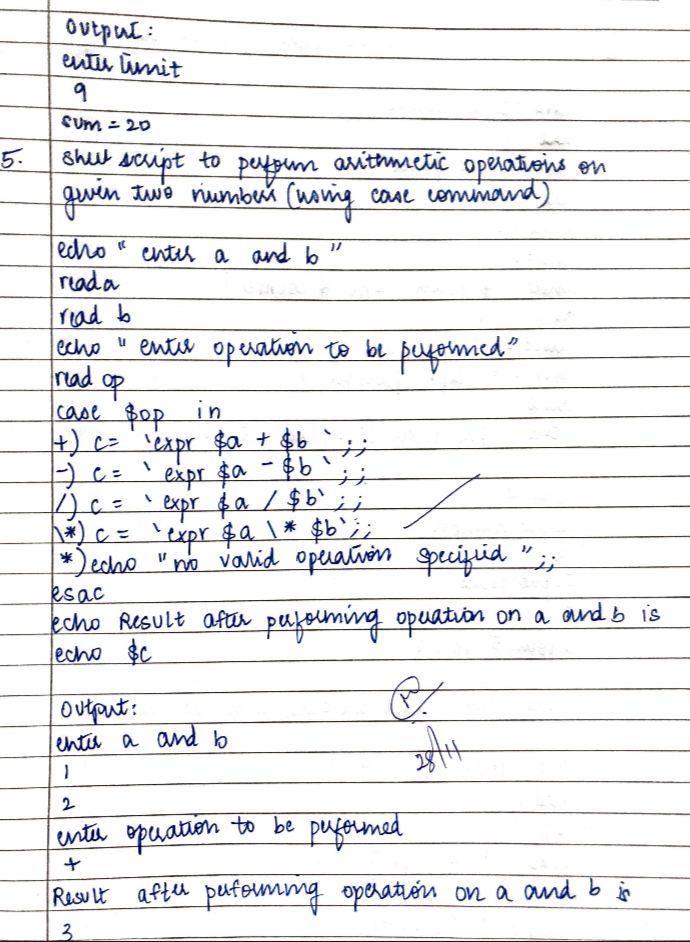 output:
enter limit
9
sum = 20
5. shell script to perform arithmetic operations on
given two numbers (using case command)
echo " enter a and b "
read a
read b
echo " enter operation to be performed"
read op
case $op in
+) c= `expr $a + $b `;;
-) c= ` expr $a - $b `;;
/) c = ` expr $a / $b` ;;
\*) c = `expr $a \* $b`;;
*) echo "no valid operation specified ";;
esac
echo Result after performing operation on a and b is
echo $c
output:
enter a and b
28/11
1
2
enter operation to be performed
+
Result after performing operation on a and b is
3